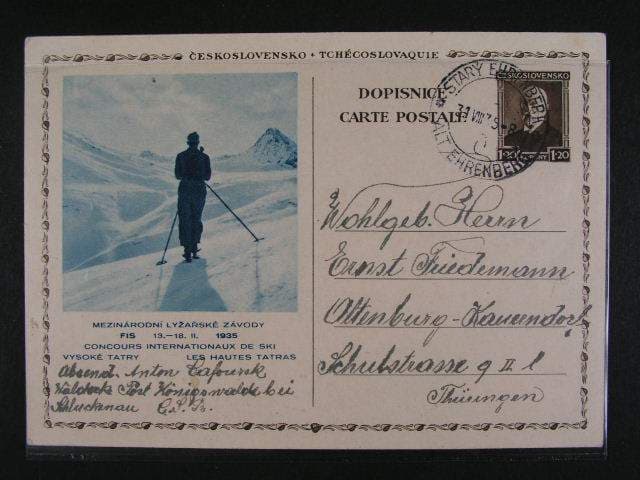 ČESKOSLOVENSKO • TCHÉCOSLOVAQUIE
DOPISNICE
CARTE POSTALE
STARÝ EHRENBERK
ALT EHRENBERG
ČESKOSLOVENSKO
1·20 1·20
MEZINÁRODNÍ LYŽAŘSKÉ ZÁVODY
FIS 13.—18. II. 1935
CONCOURS INTERNATIONAUX DE SKI
VYSOKÉ TATRY LES HAUTES TATRAS
Absend. Anton
Post Königswalde bei
Schluckenau Č.S.R.
Wohlgeb. Herrn
Ernst Friedemann
Altenburg-Kauerndorf
Schulstrasse 9 II l
Thüringen